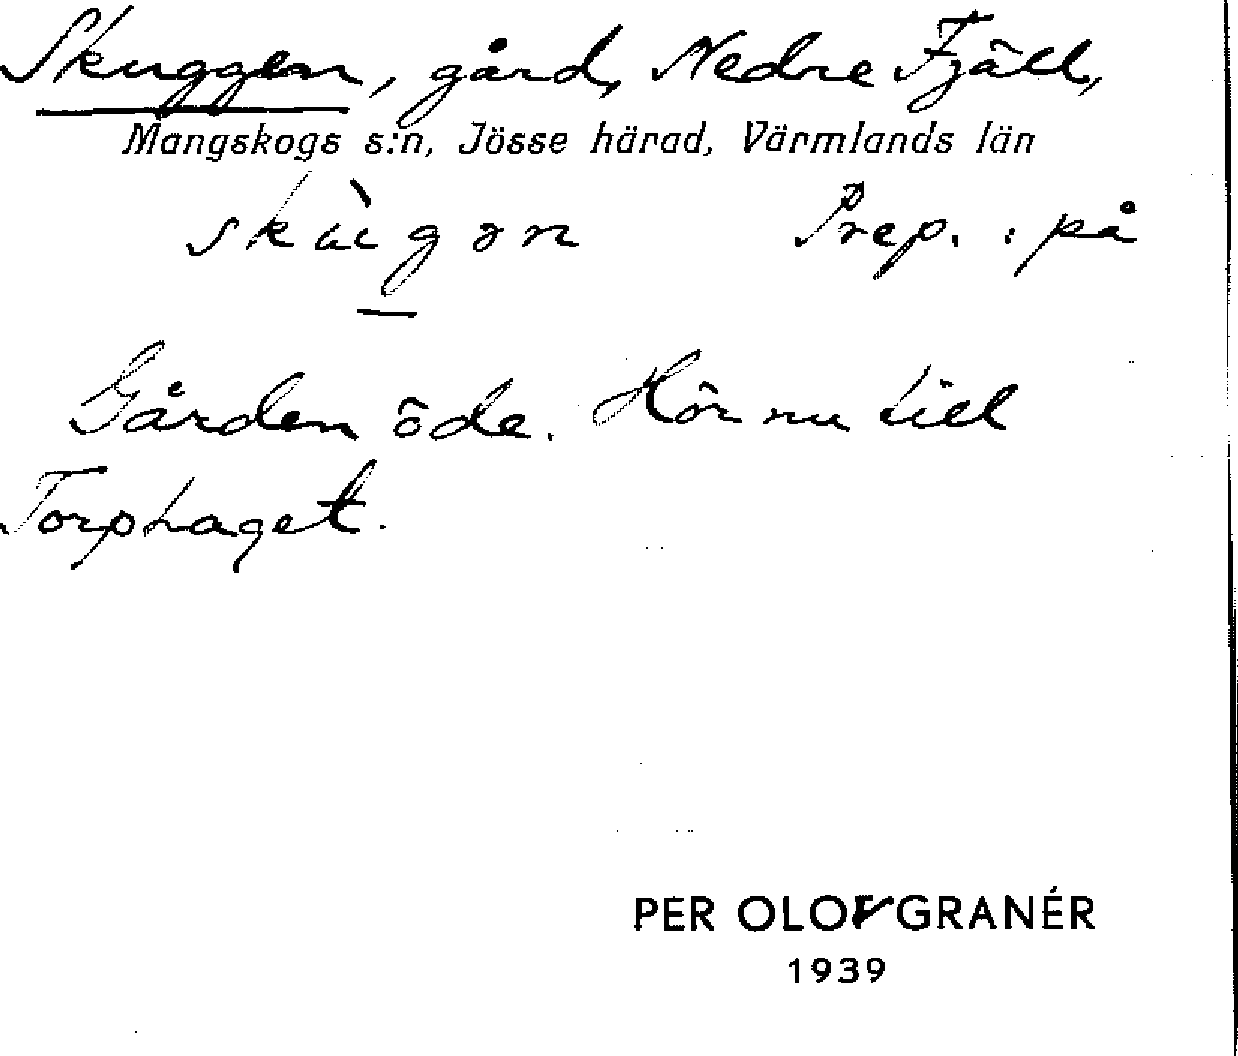 Skuggen, gård, Nedre Fjäll,
Mangskogs s:n, Jösse härad, Värmlands län
Prep. : på
Gården öde. Hör nu till
Torphaget.
PER OLOF GRANÉR
1939